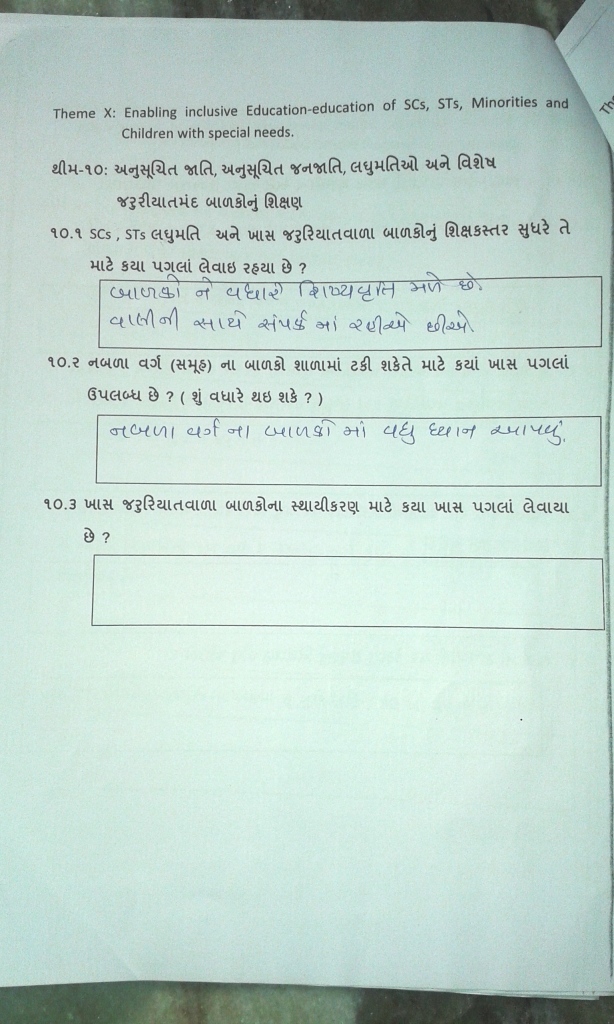 Theme X: Enabling inclusive Education-education of SCs, STs, Minorities and
Children with special needs.
થીમ-૧૦: અનુસૂચિત જાતિ, અનુસૂચિત જનજાતિ, લઘુમતિઓ અને વિશેષ
જરુરીયાતમંદ બાળકોનું શિક્ષણ
૧૦.૧ SCs , STs લઘુમતિ અને ખાસ જરુરિયાતવાળા બાળકોનું શિક્ષકસ્તર સુધરે તે
માટે કયા પગલાં લેવાઇ રહયા છે ?
બાળકો ને વધારે શિષ્યવૃતિ મળે છે.
વાલીની સાથે સંપર્ક માં રહીએ છીએ.
૧૦.૨ નબળા વર્ગ (સમૂહ) ના બાળકો શાળામાં ટકી શકેતે માટે કયાં ખાસ પગલાં
ઉપલબ્ધ છે ? ( શું વધારે થઇ શકે ? )
નબળા વર્ગ ના બાળકો માં વધુ ધ્યાન આપવું.
૧૦.૩ ખાસ જરુરિયાતવાળા બાળકોના સ્થાયીકરણ માટે કયા ખાસ પગલાં લેવાયા
છે ?
Th